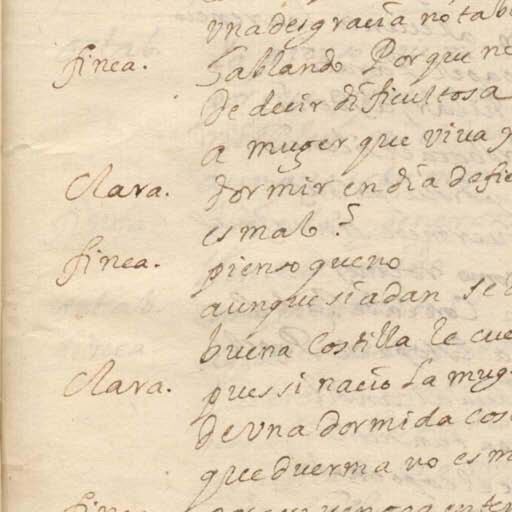 vna desgracia notab
finea. hablando Porque no
de decir dificultosa
a muger que viua y
Clara. dormir en dia de fie
es malo?
finea. pienso que no
aunque si adan se
buena costilla le cue
Clara. pues si nacio la mug
de vna dormida cos
que duerma no es m
finea.